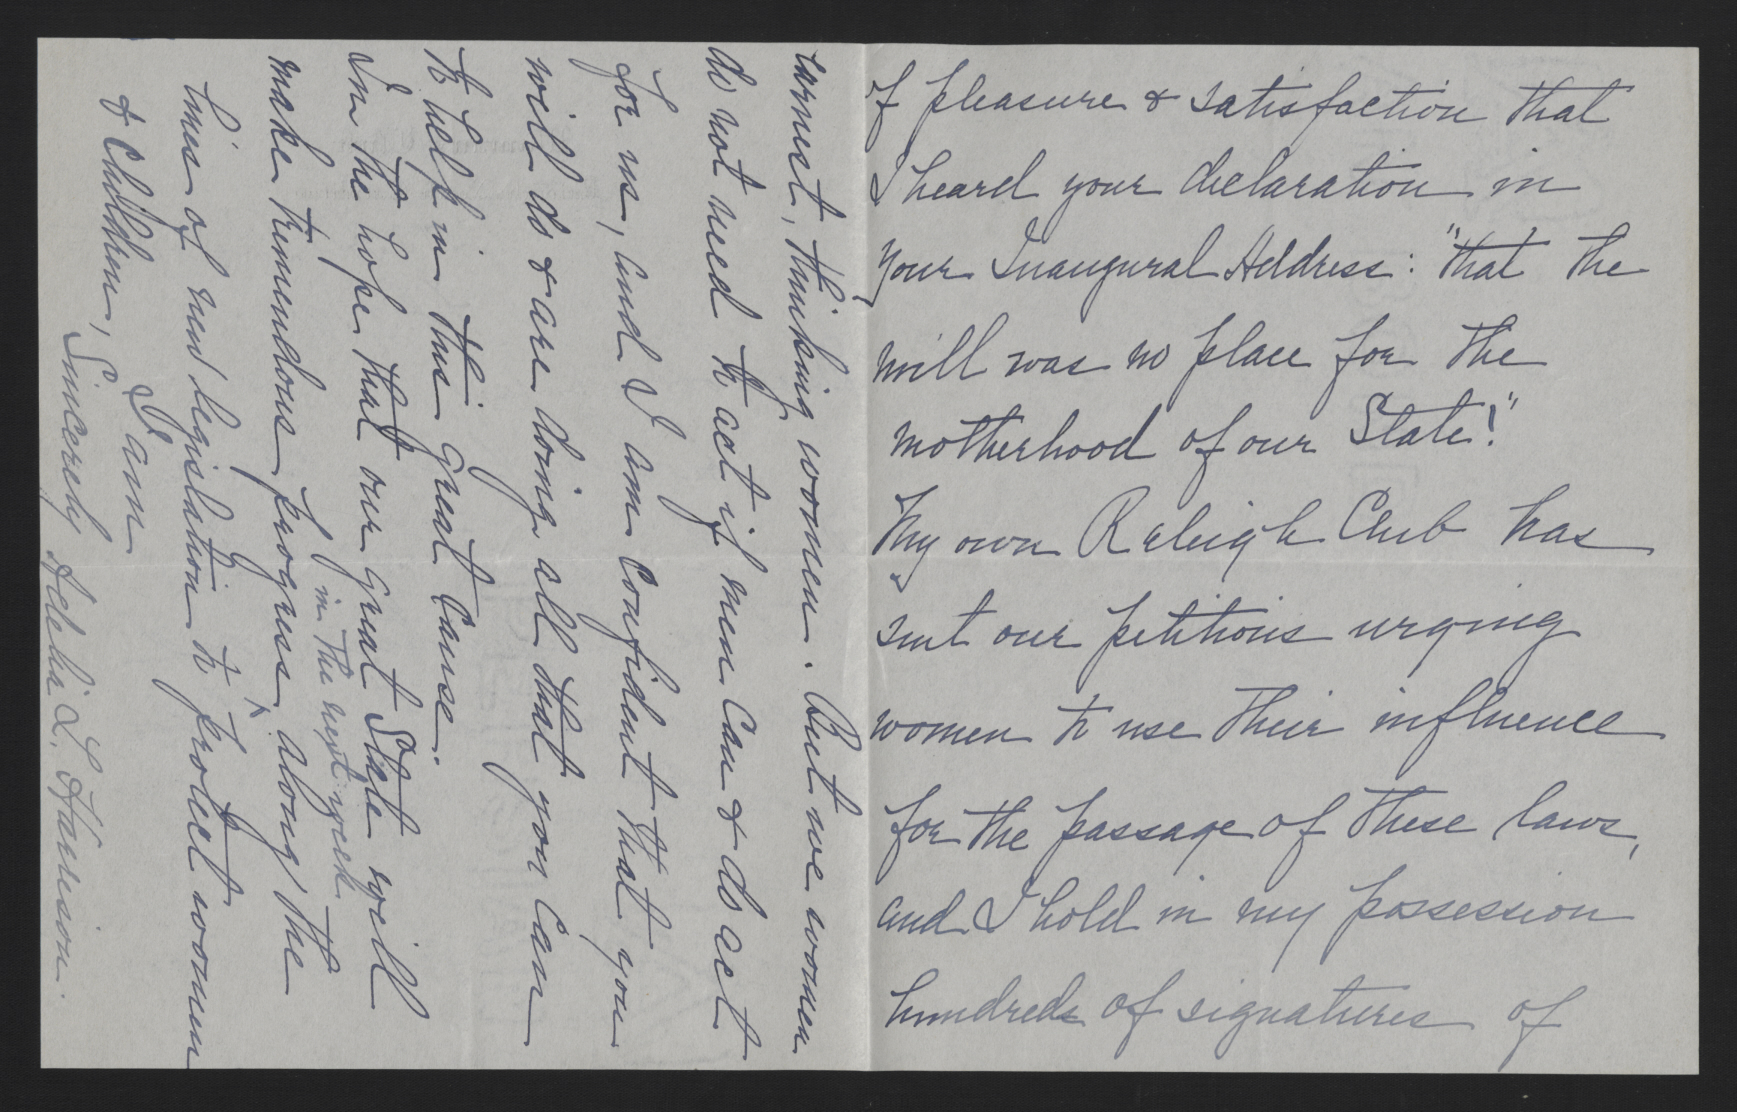 of pleasure & satisfaction that
I heard your declaration in
your Inaugural Address: "that the
mill was no place for the
motherhood of our State!"
My own Raleigh Club has
sent our petitions urging
women to use their influence
for the passage of these laws,
and I hold in my possession
hundreds of signatures of
earnest, thinking women. But we women
do not need to act if men can & do act
for us, and I am confident that you
will do & are doing all that you can
to help in this great cause.
In the hope that our great State will
in the next year
make tremendous progress ^ along the
lines of new legislation to protect women
& Children, I am
Sincerely Adelia L. Harrison.